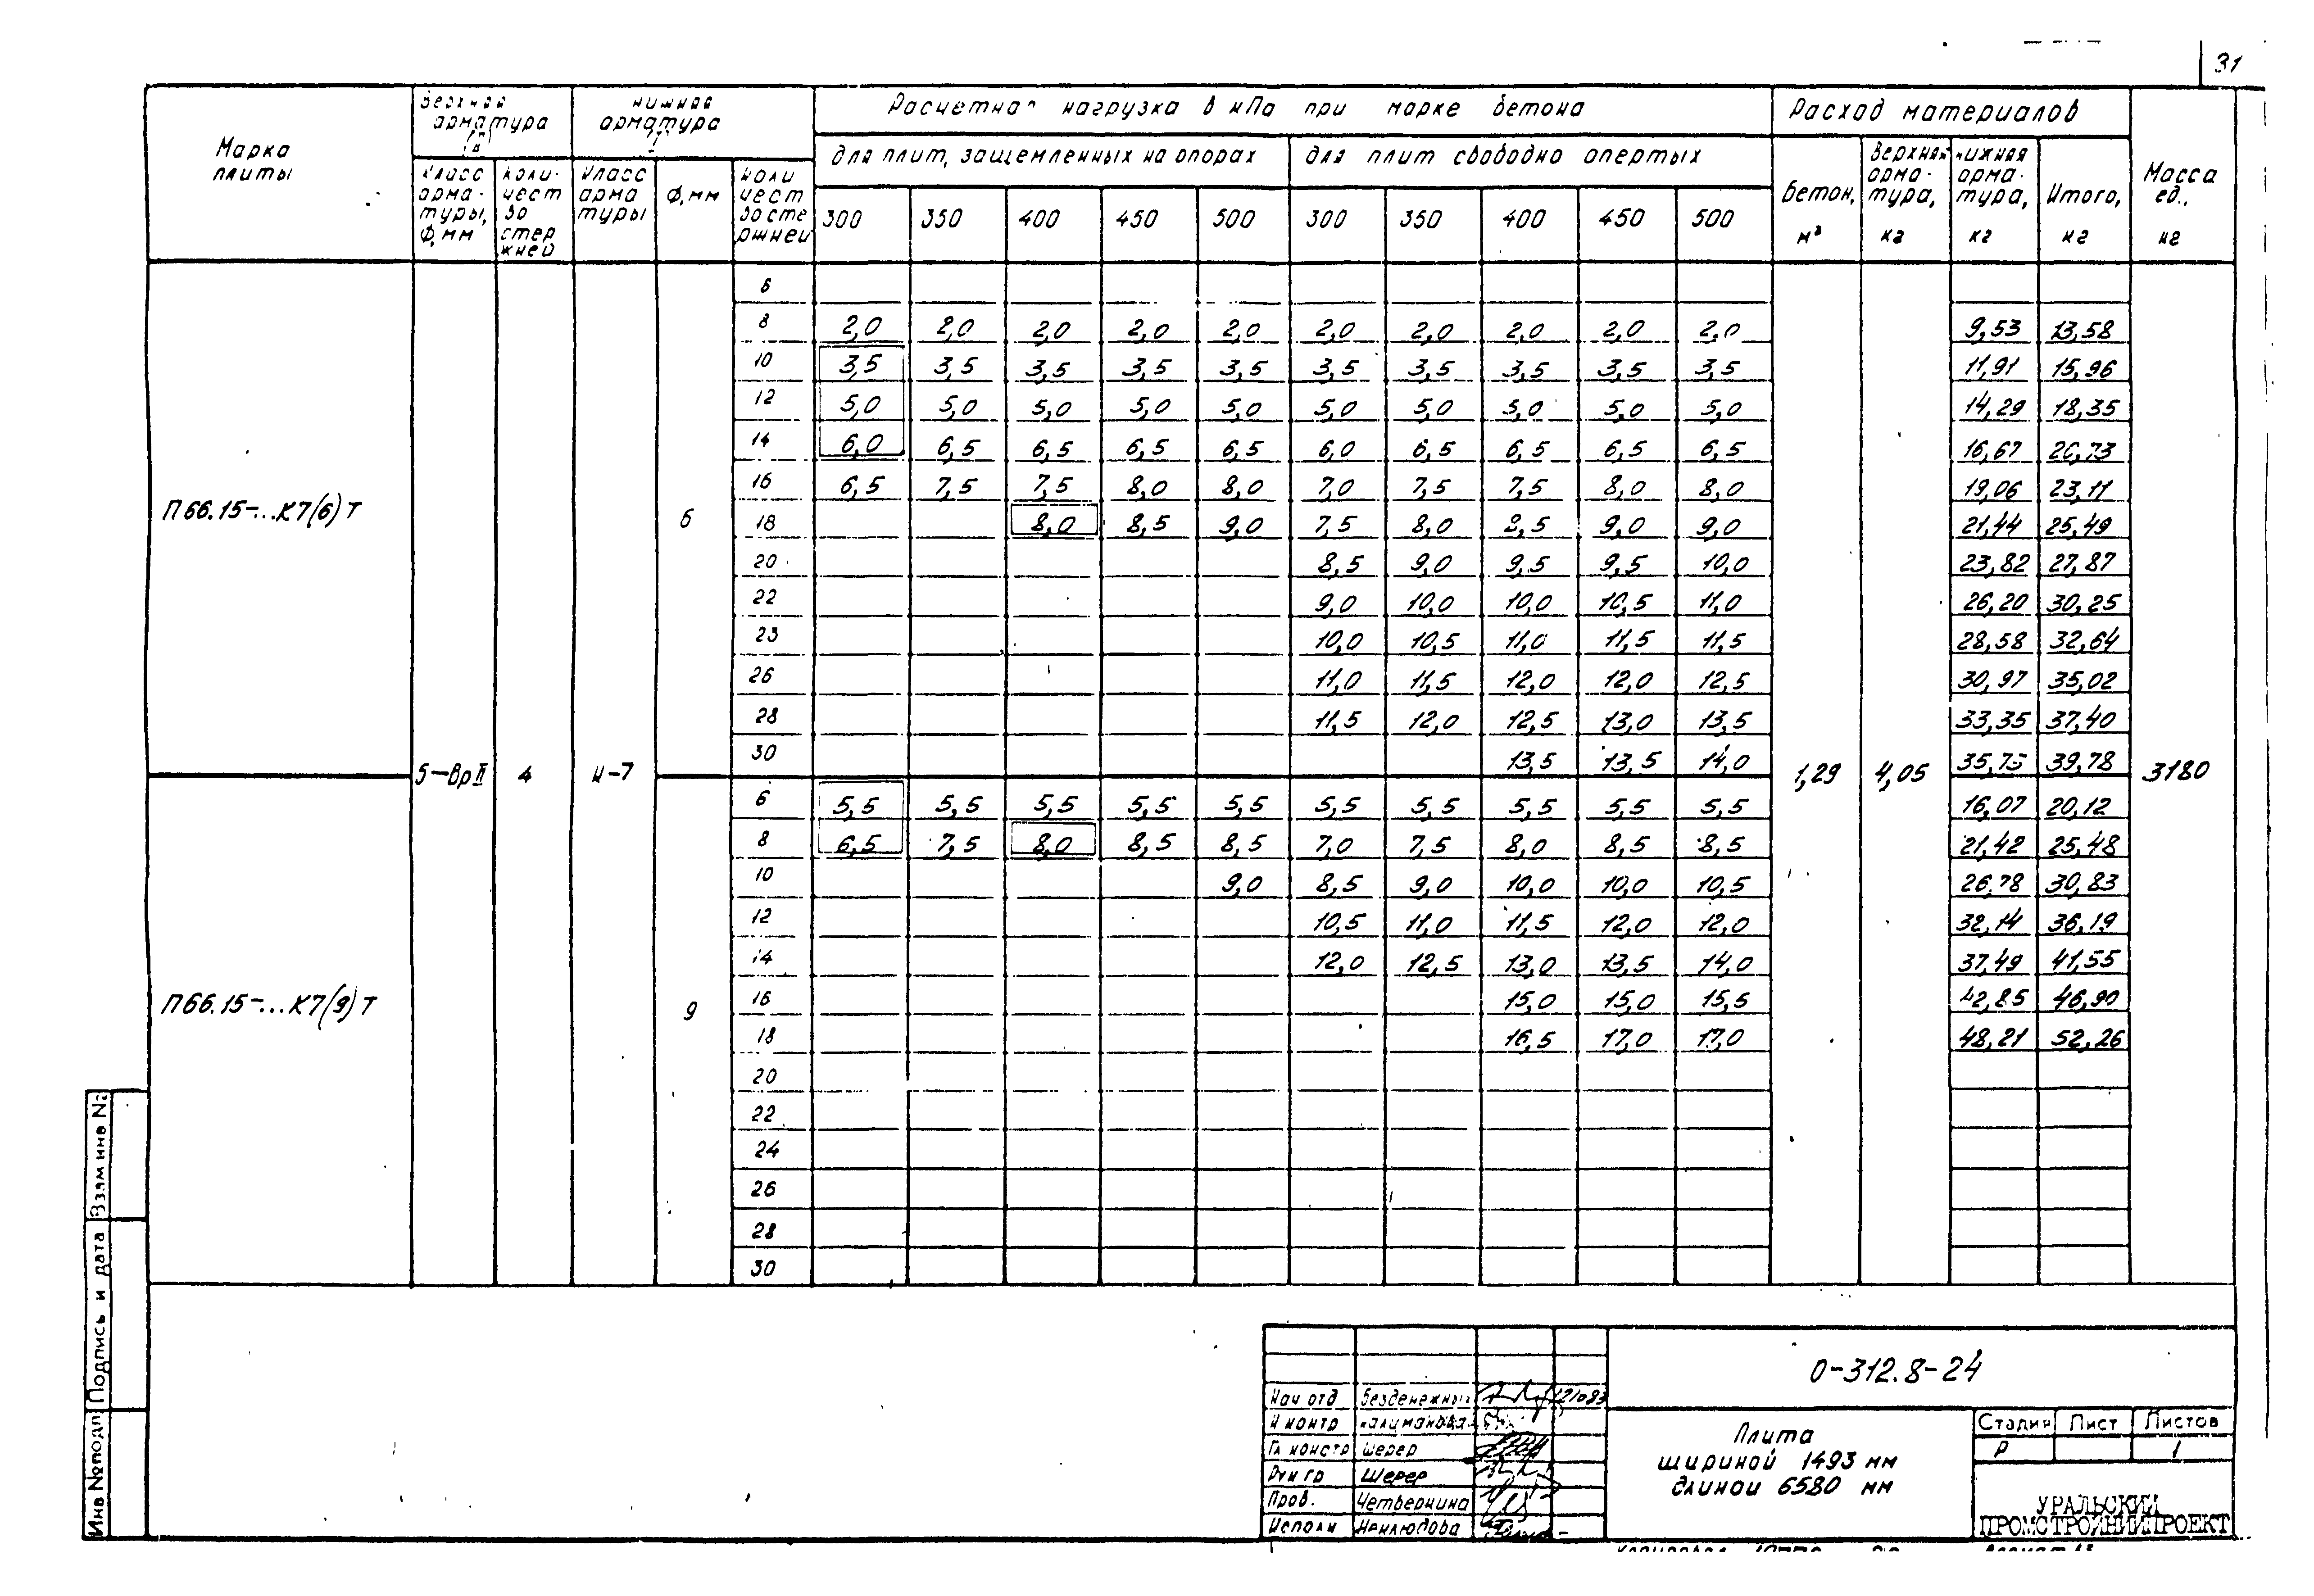 31
Марка плиты
Верхняя арматура
Нижняя арматура
Расчетная нагрузка в кПа при марке бетона
Расход материалов
Масса ед., кг
для плит, защемленных на опорах
для плит свободно опертых
Класс арма-туры, Ф,мм
Коли-чест во стер жней
Класс арма туры
Ф,мм
Коли чест во сте ржней
300 350 400 450 500 300 350 400 450 500
Бетон, м³
Верхняя арма-тура, кг
Нижняя арма-тура, кг
Итого, кг
П66.15-...К7(6)Т
6
6
8 2,0 2,0 2,0 2,0 2,0 2,0 2,0 2,0 2,0 2,0 9,53 13,58
10 3,5 3,5 3,5 3,5 3,5 3,5 3,5 3,5 3,5 3,5 11,91 15,96
12 5,0 5,0 5,0 5,0 5,0 5,0 5,0 5,0 5,0 5,0 14,29 18,35
14 6,0 6,5 6,5 6,5 6,5 6,0 6,5 6,5 6,5 6,5 16,67 20,73
16 6,5 7,5 7,5 8,0 8,0 7,0 7,5 7,5 8,0 8,0 19,06 23,11
18 8,0 8,5 9,0 7,5 8,0 8,5 9,0 9,0 21,44 25,49
20 8,5 9,0 9,5 9,5 10,0 23,82 27,87
22 9,0 10,0 10,0 10,5 11,0 26,20 30,25
23 10,0 10,5 11,0 11,5 11,5 28,58 32,64
26 11,0 11,5 12,0 12,0 12,5 30,97 35,02
28 11,5 12,0 12,5 13,0 13,5 33,35 37,40
30 13,5 13,5 14,0 35,73 39,78
5-ВрII 4 К-7 1,29 4,05 3180
П66.15-...К7(9)Т
9
6 5,5 5,5 5,5 5,5 5,5 5,5 5,5 5,5 5,5 5,5 16,07 20,12
8 6,5 7,5 8,0 8,5 8,5 7,0 7,5 8,0 8,5 8,5 21,42 25,48
10 9,0 8,5 9,0 10,0 10,0 10,5 26,78 30,83
12 10,5 11,0 11,5 12,0 12,0 32,14 36,19
14 12,0 12,5 13,0 13,5 14,0 37,49 41,55
16 15,0 15,0 15,5 42,85 46,90
18 16,5 17,0 17,0 48,21 52,26
20
22
24
26
28
30
Инв №подл Подпись и дата Взам инв №
О-312.8-24
Нач отд Безденежных 121083
Н контр Калиманова
Гл констр Шерер
Рук гр Шерер
Пров. Четверкина
Исполн Неклюдова
Плита
шириной 1493 мм
длиной 6580 мм
Стадия Лист Листов
Р 1
УРАЛЬСКИЙ
ПРОМСТРОЙНИИПРОЕКТ